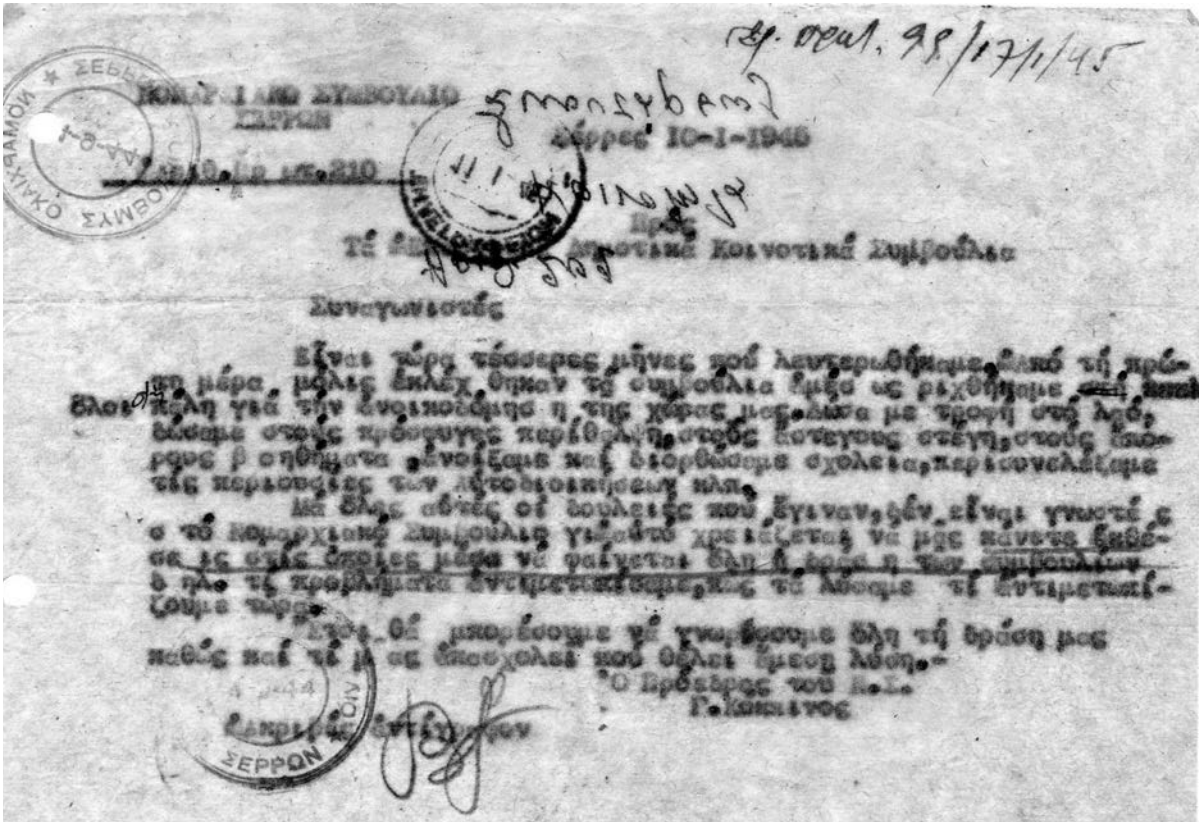 αρ. πρωτ. 99/17/1/45
ΝΟΜΑΡΧΙΑΚΟ ΣΥΜΒΟΥΛΙΟ
ΣΕΡΡΩΝ
Σέρρες 10-1-1945
Αριθ.Πρωτ.210
Πρός
Τά Δημοτικά Κοινοτικά Συμβούλια
Συναγωνιστές
Εἶναι τώρα τέσσερες μῆνες πού λευτερωθήκαμε. Ἀπό τή πρώ-
τη μέρα μόλις ἐκλέχ θηκαν τά συμβούλια ἀμέσ ως ριχθήκαμε
ὅλοι πάλη γιά τήν ἀνοικοδόμησ η της χώρας μας. Δώσα με τροφή στό λαό,
δώσαμε στούς πρόσφυγης περίθαλψη, στούς ἄστεγους στέγη, στούς ἀπό-
ρους β οηθήματα , ἀνοίξαμε καί διορθώσαμε σχολεια, περισυνελέξαμε
τίς περιουσίες των Αὐτοδιοικήσεων κλπ.
Μά ὅλες αὐτές οἱ δουλειές πού ἔγιναν, δέν εἶναι γνωστέ ς
σ τό Νομαρχιακό Συμβούλιο γι'αὐτό χρειάζεται νά μᾶς κάνετε ἐκθέ-
σε ις στές ὁποῖες μέσα νά φαίνεται ὅλη ἡ δράσ η των συμβουλίων
δ ηλ. τί προβλήματα ἀντιμετωπίσαμε, πώς τά λύσαμε τί ἀντιμετωπί-
ζουμε τώρα.
Ἔτσι θά μπορέσουμε νά γνωρίσουμε ὅλη τή δράση μας
καθώς καί τί μ ας ἀπασχολεί πού θέλει ἄμεση λύση.-
Ὁ Πρόεδρος του Ν.Σ.
Γ.Κόκκινος
Ἀκριβές ἀντίγραφον
ΣΕΡΡΩΝ